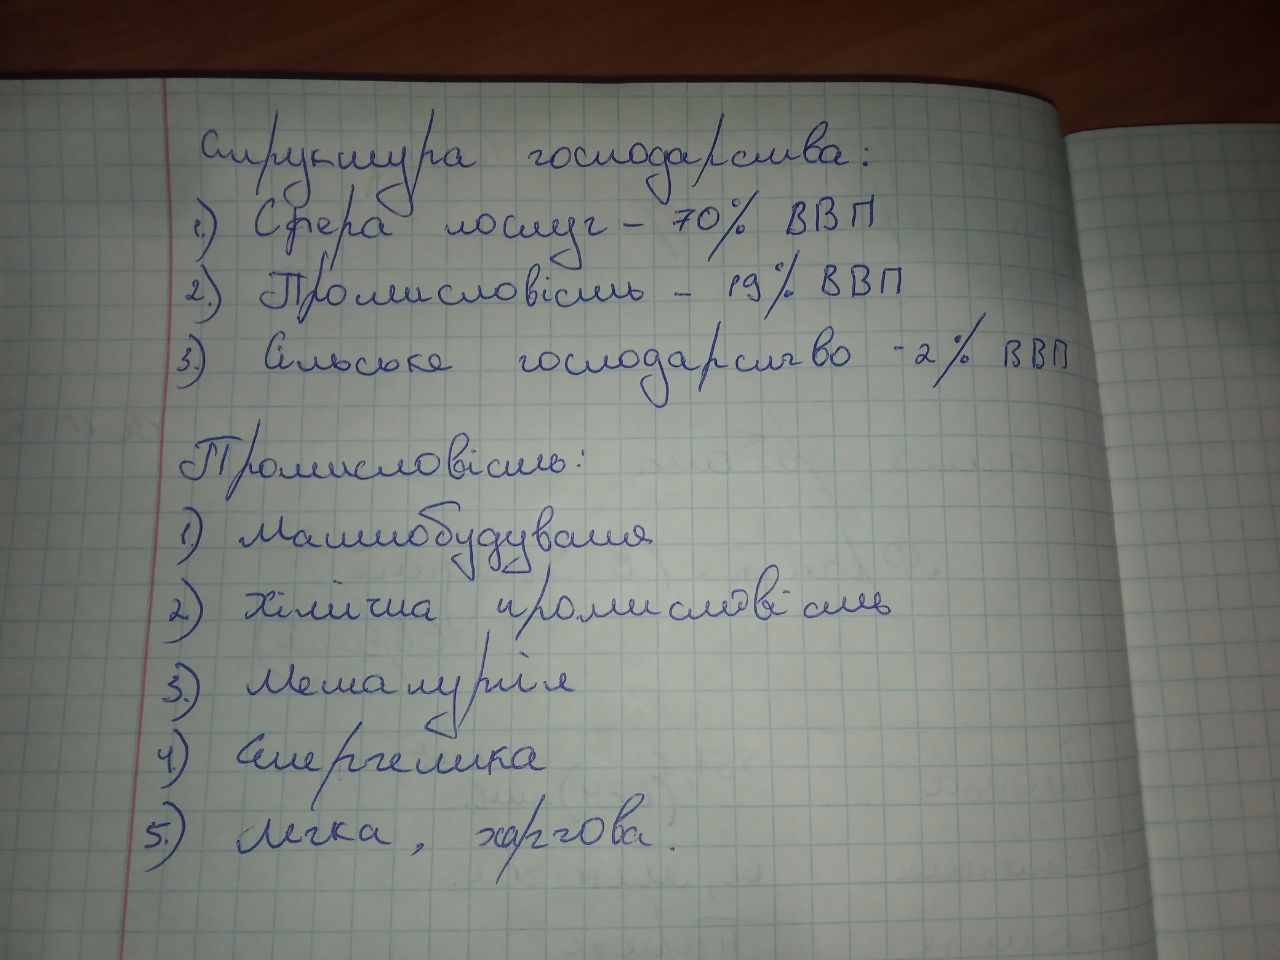 Структура господарства:
1.) Сфера послуг - 70% ВВП
2.) Промисловість - 19% ВВП
3.) Сільське господарство - 2% ВВП
Промисловість:
1) Машинобудування
2) Хімічна промисловість
3.) Металургія
4.) Енергетика
5.) Легка, харчова.